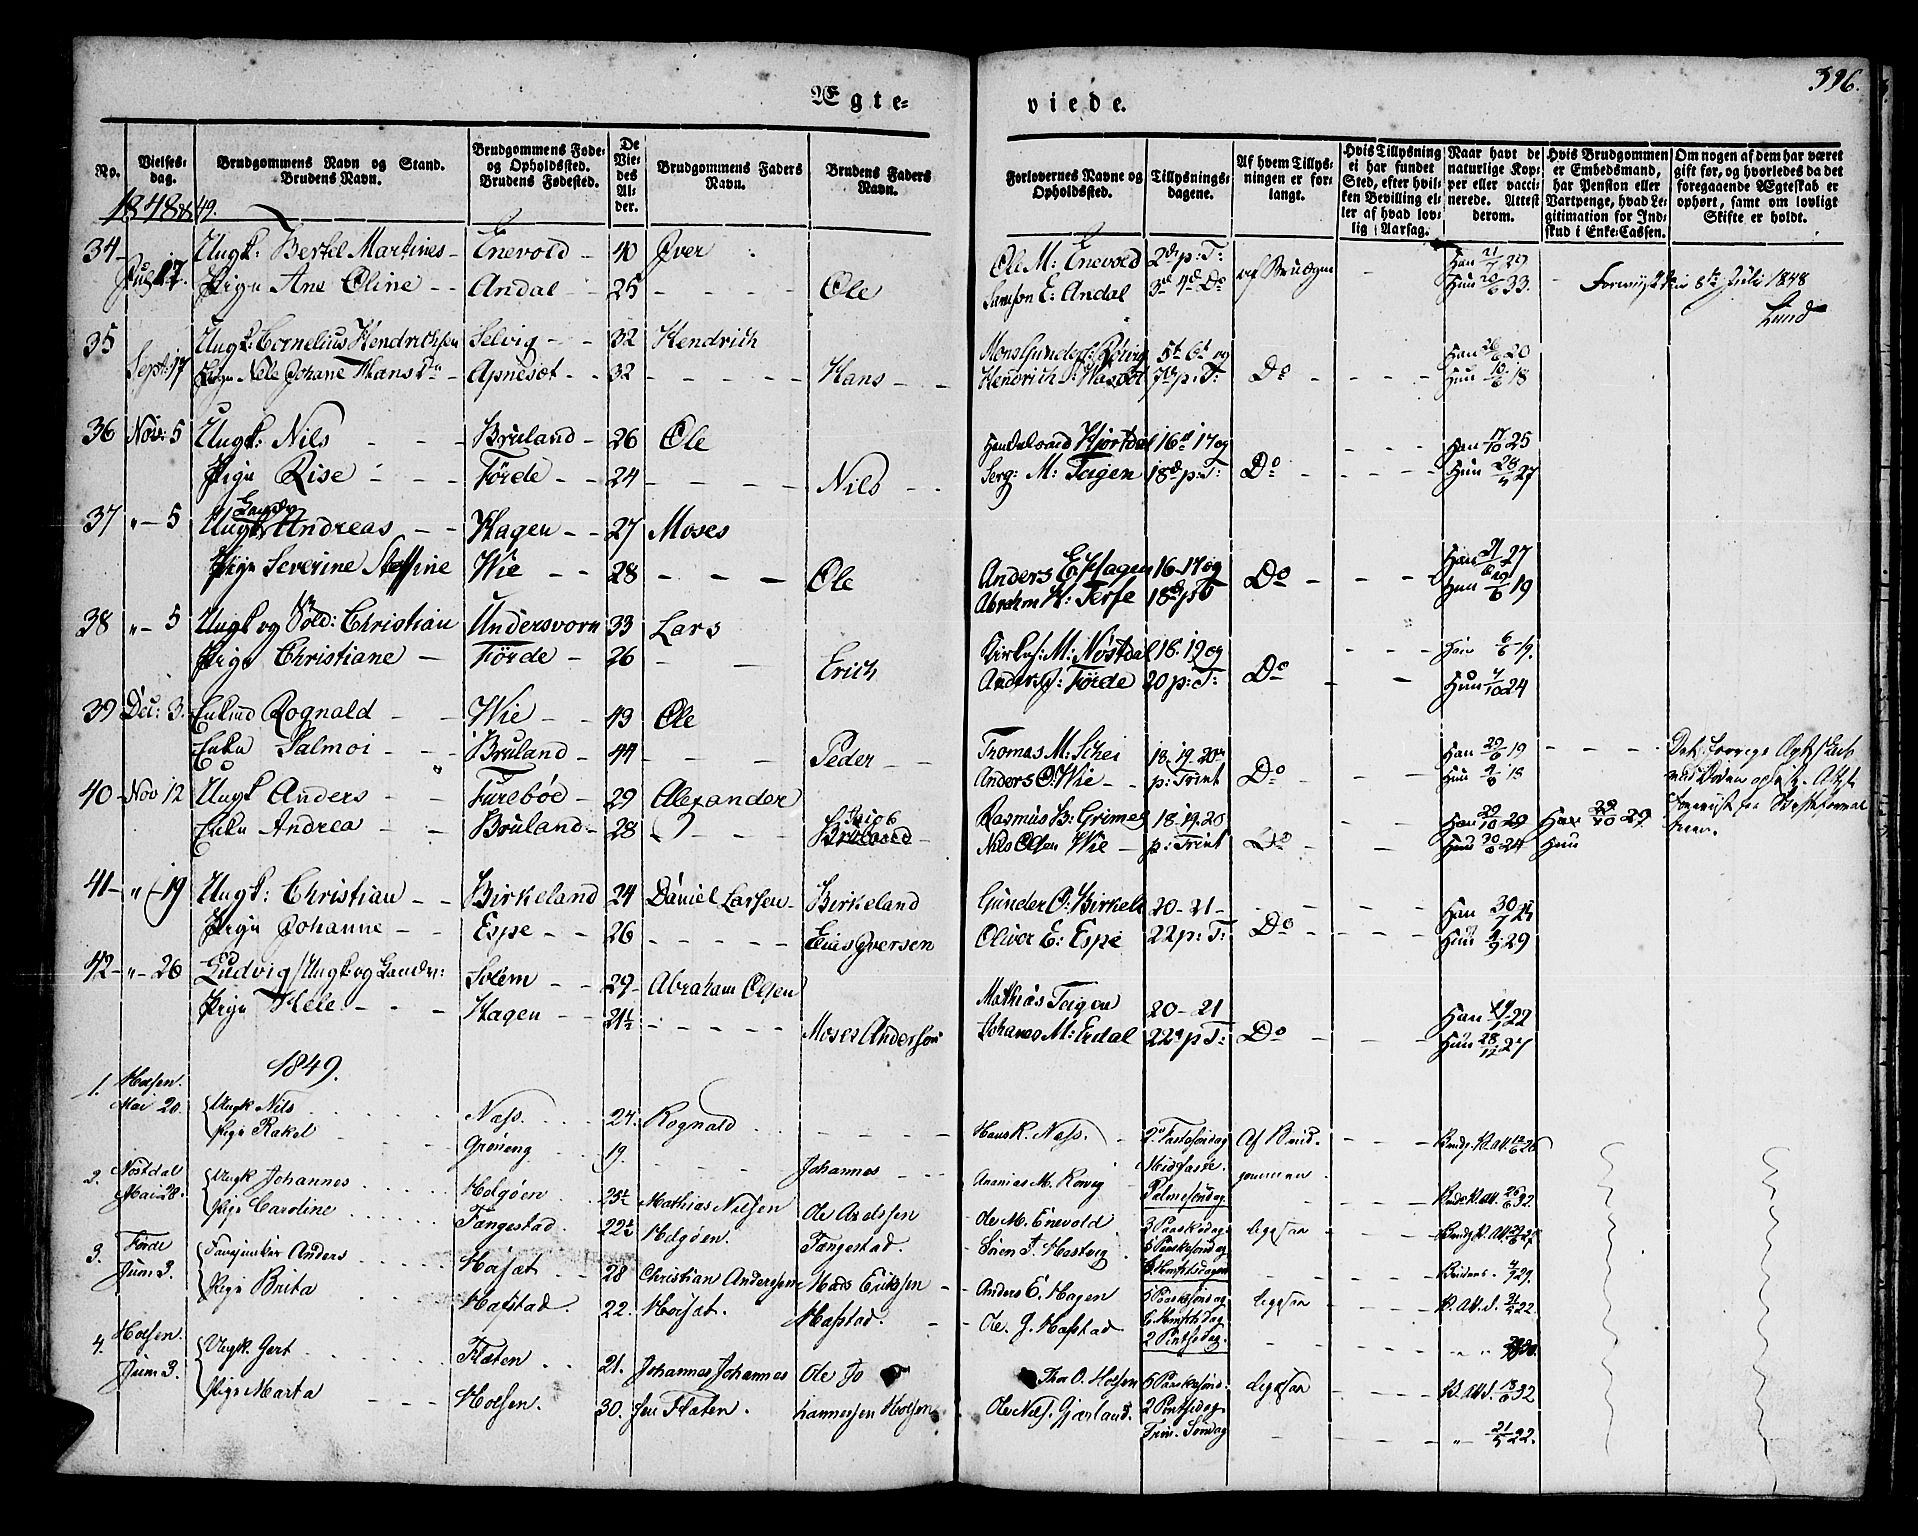 Ægte-
viede.
396.
No.
Vielses-dag.
Brudgommens Navn og Stand.
Brudens Navn.
Brudgommens Føde- og Opholdssted.
Brudens Fødested.
De Viedes Alder.
Brudgommens Faders Navn.
Brudens Faders Navn.
Forlovernes Navne og Opholdssted.
Tillysningsdagene.
Af hvem Tillysningen er forlangt.
Hvis Tillysning ei har fundet Sted, efter hvilken Bevilling eller af hvad lovlig Aarsag.
Naar havt de naturlige Kopper eller vaccinerede. Attest derom.
Hvis Brudgommen er Embedsmand, har Pension eller Vartpenge, hvad Legitimation for Indskud i Enke-Cassen.
Om nogen af dem har været gift før, og hvorledes da det foregaaende Ægteskab er ophørt, samt om lovligt Skifte er holdt.
1848 & 49.
34 Ungk: Bertel Martines Enevold 40 Iver Ole M: Enevold 2den p: T: Han 21/7 29
17. Pige Ane Oline Andal 25 Ole Samson E: Andal 3de 4de Do af Brudgm Hun 20/6 33.
8de Juli 1848
Lund
35 Ungk: Cornelius Hendrichsen Selvig 32 Hendrich Mons Gunders: 5te 6te og Han 26/6 20
Sept: 17 Pige Nele Johane Hans Da Apnesæt 32 Hans Hendrich 7de p: T: Do Hun 10/6 18
36 Nov: 5 Ungk: Nils Bruland 26 Ole Hjortdal 16de 17 og Han 17/10 25
Pige Rise Førde 24 Nils Serg: M: Teigen 18de p: T: Do Hun 28/4 27
37 " 5 Ungk Landv Andreas Hagen 27 Moses Anders E: Hagen 16-17 og Han 21/7 27
Pige Severine Steffine Wie 28 Ole Abrahm H: Terfe 18de p T Do Hun 19/6 19
38 " 5 Ungk og Sold: Christian Undersvorn 33 Lars M: Nøstdal 18. 19 og Han 6/6 19.
Pige Christiane Førde 26 Erich Anders J: Førde 20 p: T: Do Hun 7/10 24
39 Dec: 3. Enkmd Rognald Wie 43 Ole Thomas M: Schei 18. 19. 20de Han 29/6 19
Enke Salmoi Bruland 44 Peder Anders O: Wie p: Trint Do Hun 4/8 18
40 Nov 12 Ungk Anders Furebøe 29 Alexander Rasmus B: Grimes 18. 19. 20 Han 29/10 29 Han 29/10 29
Enke Andrea Bruland 28 Bruland Nils Olsen Wie p: Trint Do Hun 30/8 24 Hun
41 " 19 Ungk: Christian Birkeland 24 Daniel Larsen Birkeland Gunder O: Birkel 20-21 Han 30/7 27
Pige Johanne Espe 26 Elias Iversen Oliver E: Espe 22 p: T: Do Hun 4/9 29
42 " 26 Ludvig Ungk og Landv: Solem 29 Abraham Olsen Mathias Teigen 20-21 Han 22
Pige Hele Hagen 21½ Moses Anderson Johanes M: Erdal 22de p T: Do Hun 28/12 27
1849.
1. Holsen. Mai 20. Ungk Nils Næss. 24. Rognald Hans R. Næss. 2den Fastesøndag Af Brud- Brudg. V. Att. 12/6 26
Pige Rakel Grøneng 19. Johannes Midfaste. gommen
2. Nøstdal Mai 28. Ungk Johannes Helgøen 25½ Mathias Nielsen Ole Axelsen Ananias M. Rørvig Palmesøndag 26/6 32.
Pige Caroline Tangestad. 22½ Helgøen. Tangestad. Ole M. Enevold 3 Paaskedag ligesaa Brudg. V. Att. 22/6 27.
3. Førde Juni 3. Anders Holsæt 28 Christian Andersen Mads Eriksen Søren J. Hestvig 5 Paaskesøndag Brudens 9/7 29.
Pige Brita Hafstad. 22. Holsæt. Hafstad. Anders E. Hagen 5 Paaskesøndag ligesaa V. Att. 21/5 22.
Ole. J. Hafstad 2 Pintsedag.
4. Holsen. Juni 3. Ungk. Gert Flaten 21. Johannes Johannes Ole Jo Ths O. Holsen 5 Paaskesønd. ligesaa V. Att. 18/6 32
Pige Marta Holsen. 30. sen Flaten. hannessen Holsen Ole Næss. Gjærland. 2 Pintsedag. Trin. Søndag " 21/5 22.